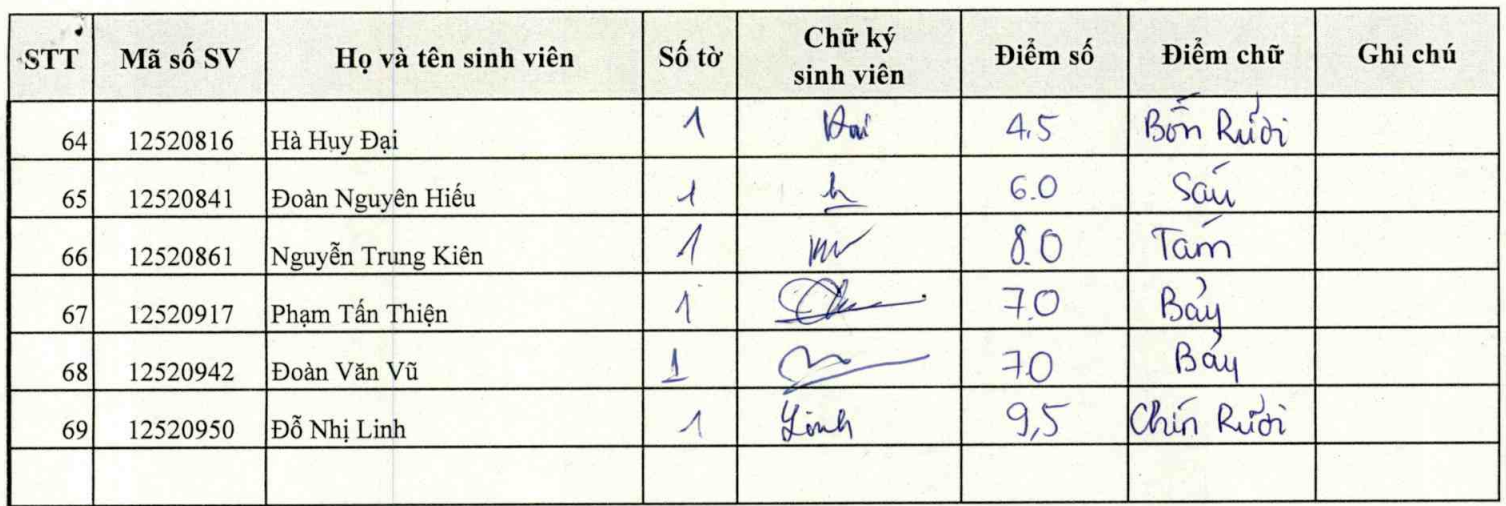 STT Mã số SV Họ và tên sinh viên Số tờ Chữ ký sinh viên Điểm số Điểm chữ Ghi chú
64 12520816 Hà Huy Đại 1 Đai 4.5 Bốn Rưỡi
65 12520841 Đoàn Nguyên Hiếu 1 h 6.0 Sáu
66 12520861 Nguyễn Trung Kiên 1 8.0 Tám
67 12520917 Phạm Tấn Thiện 1 7.0 Bảy
68 12520942 Đoàn Văn Vũ 1 7.0 Bảy
69 12520950 Đỗ Nhị Linh 1 Linh 9,5 Chín Rưỡi